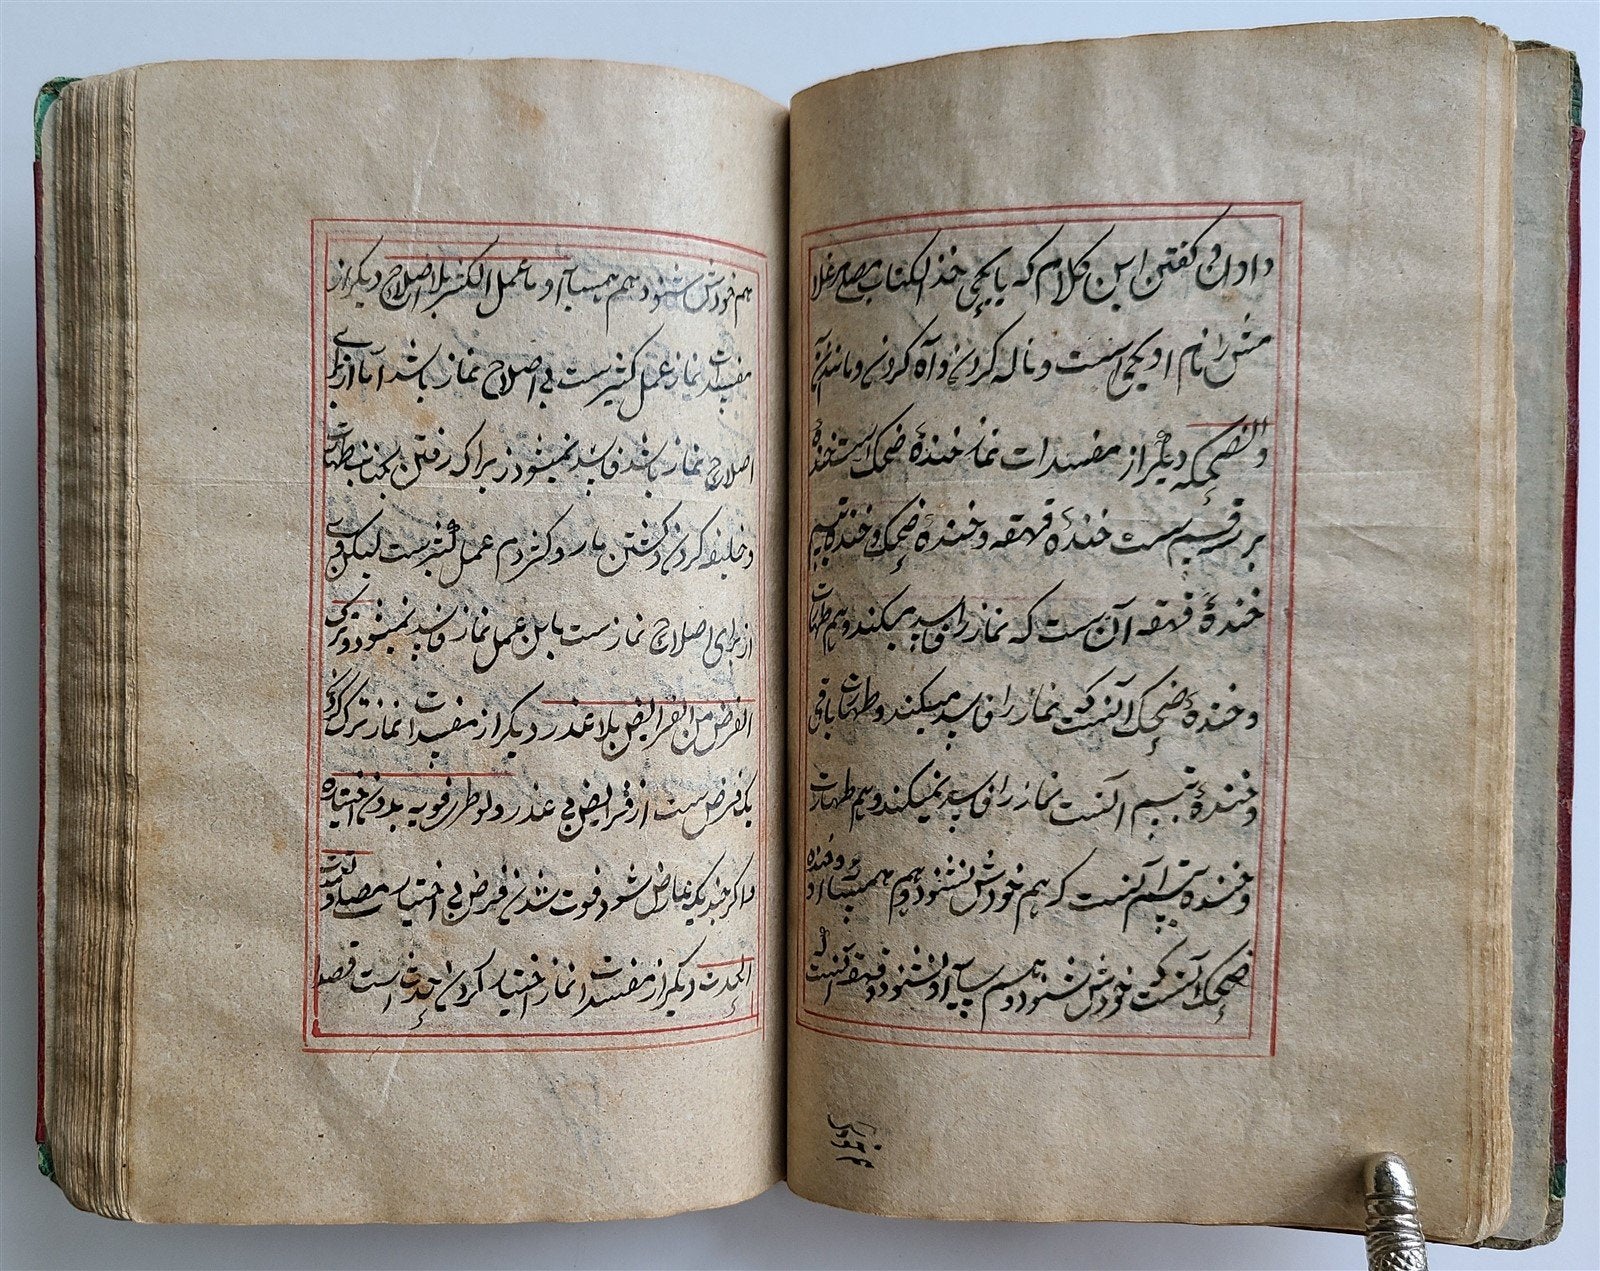 دادن و گفتن این کلام که یا یحیی خذ الکتاب مصلی غلا
مش را نام او یحیی است و ناله کردن و آه کردن و مانند آن
والضحکه دیگر از مفسدات نماز خندهٔ ضحک است خنده
بر قسم ست خندهٔ قهقه و خندهٔ ضحک و خنده تبسم
خندهٔ قهقه آن ست که نماز را فاسد میکند و هم طهارت
و خندهٔ ضحک آنست که نماز را فاسد میکند و طهارت باقی
و خندهٔ تبسم آنست نماز را فاسد نمیکند و هم طهارت
و خنده تبسم آنست که هم خودش نشنود و هم همسایه او و خنده
ضحک آنست که خودش شنود و همسایه او نشنود و قهقه آنست که
هم خودش شنود هم همسایه او و عمل الکثیر بلا اصلاح دیگر از
مفسدات نماز عمل کثیر ست بی اصلاح نماز باشد اما از برای
اصلاح نماز باشد فاسد نمیشود زیرا که رفتن بجانب طهارت
و خلیفه کردن و کشتن مار و کژدم عمل کثیر ست لیکن
از برای اصلاح نماز ست باین عمل نماز فاسد نمیشود و ترک
الفرض من الفرایض بلا عذر دیگر از مفسدات نماز ترک کردن
یک فرض ست از فرایض بی عذر ولو طرفویه بدون اختیاره
اگر چیزیکه عارض شود فوت شدن فرض بی اختیار مصلی و تعمد
الحدث دیگر از مفسدات نماز اختیار کردن حدث است قصدا